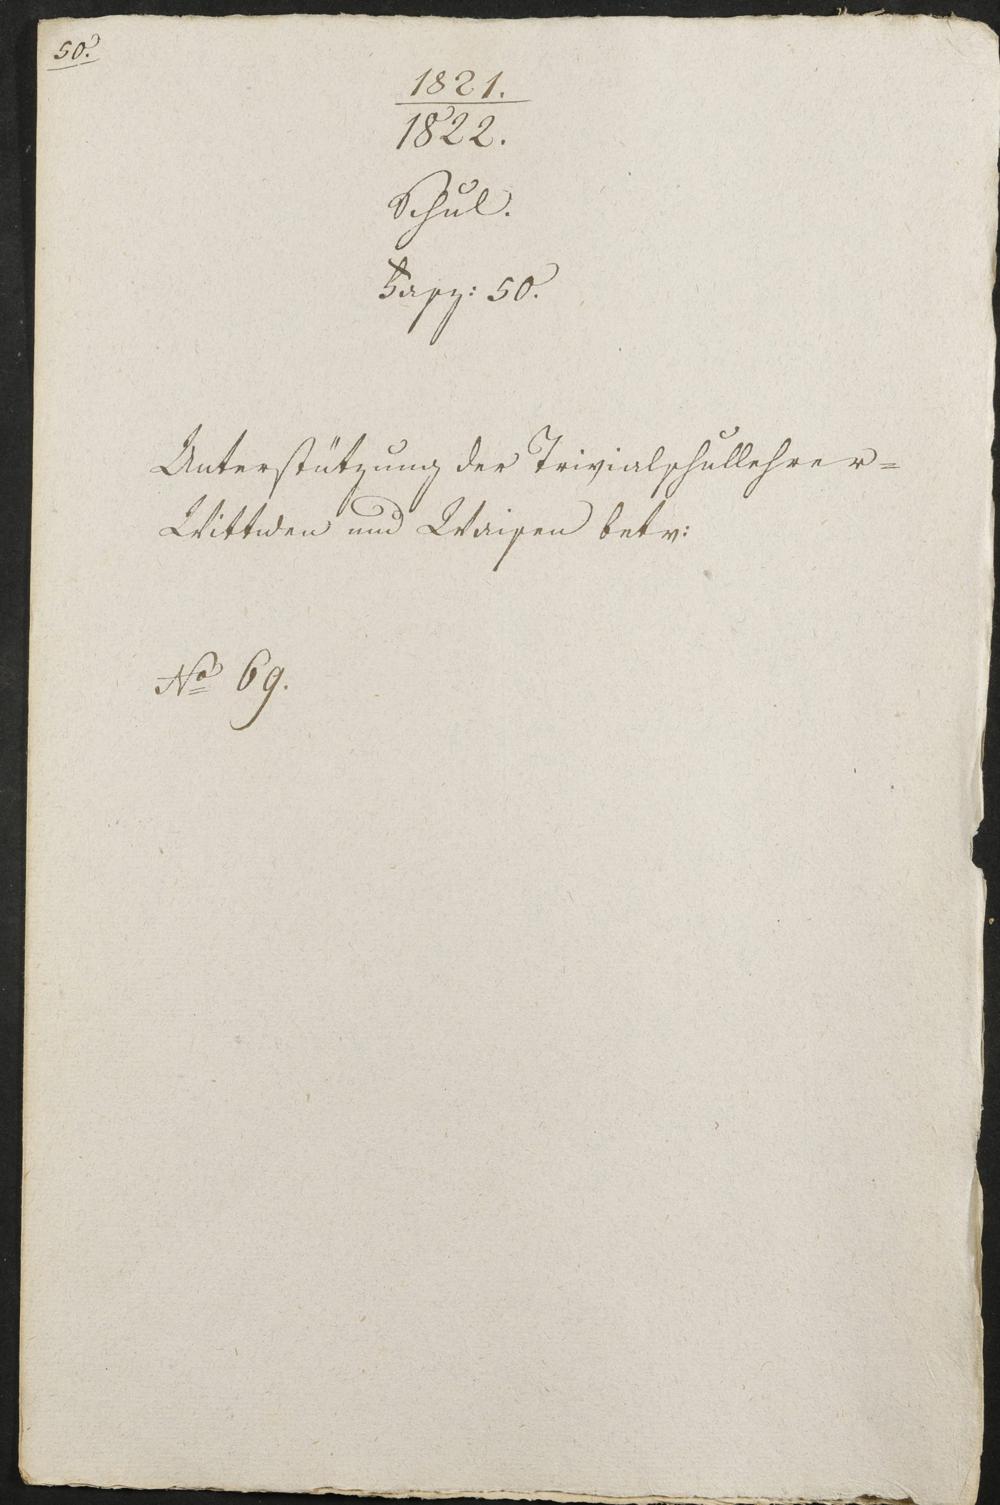 50.
1821.
1822.
Schul.
Fasz: 50.
Unterstützung der Trivialschullehrer=
Wittwen und Waisen betr:
No 69.